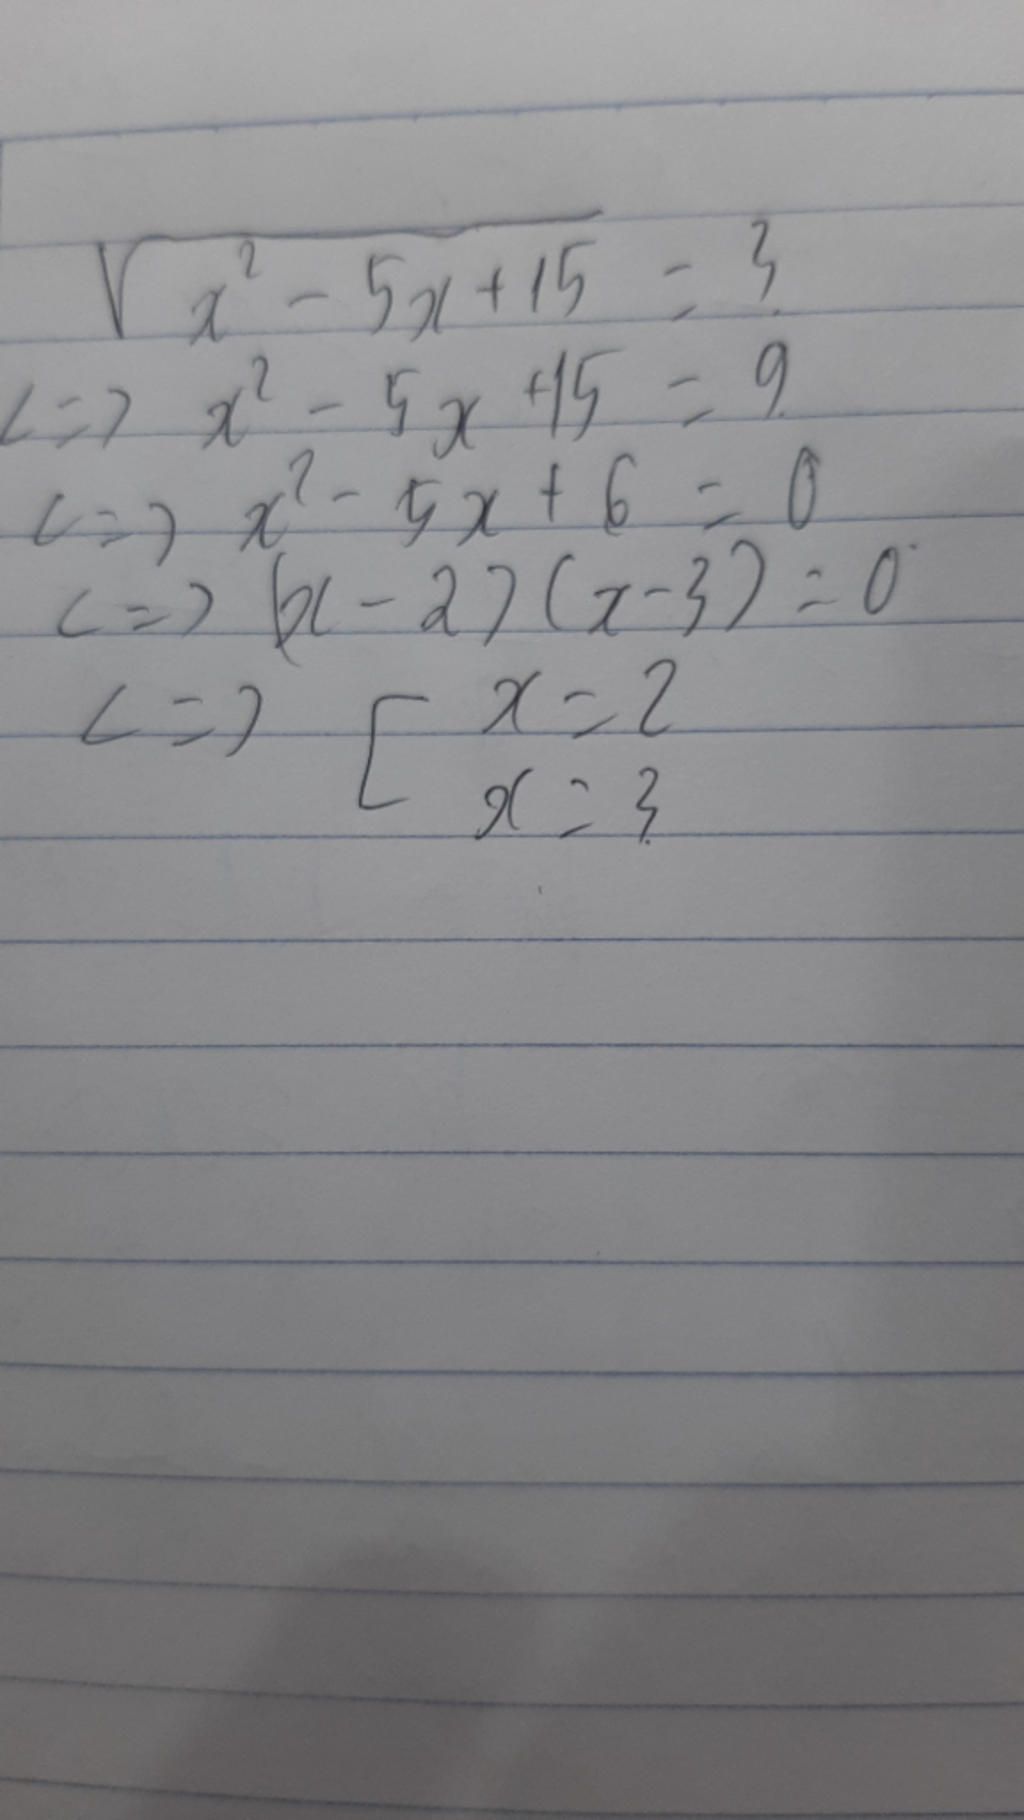 √(x² - 5x + 15) = 3
<=> x² - 5x + 15 = 9
<=> x² - 5x + 6 = 0
<=> (x - 2)(x - 3) = 0
<=> [ x = 2
x = 3